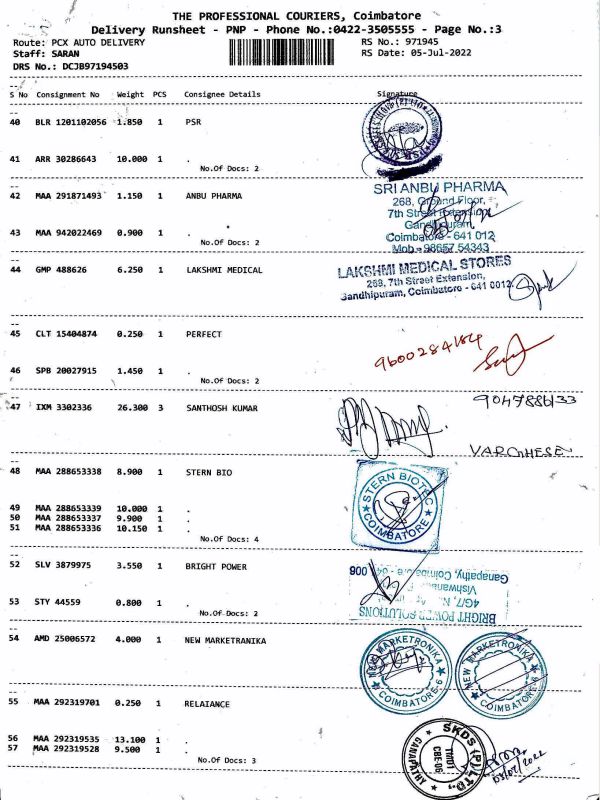 THE PROFESSIONAL COURIERS, Coimbatore
Delivery Runsheet - PNP - Phone No.:0422-3505555 - Page No.:3
Route: PCX AUTO DELIVERY RS No.: 971945
Staff: SARAN RS Date: 05-Jul-2022
DRS No.: DCJB97194503
S No Consignment No Weight PCS Consignee Details Signature
40 BLR 1201102056 1.850 1 PSR
41 ARR 30286643 10.000 1 .
No.Of Docs: 2
42 MAA 291871493 1.150 1 ANBU PHARMA
SRI ANBU PHARMA
268, Ground Floor,
7th Street Extension,
Gandhipuram,
Coimbatore - 641 012
Mob - 98657 54343
43 MAA 942022469 0.900 1 .
No.Of Docs: 2
44 GMP 488626 6.250 1 LAKSHMI MEDICAL
LAKSHMI MEDICAL STORES
268, 7th Street Extension,
Gandhipuram, Coimbatore - 641 0012.
45 CLT 15404874 0.250 1 PERFECT
9600284184
46 SPB 20027915 1.450 1 .
No.Of Docs: 2
47 IXM 3302336 26.300 3 SANTHOSH KUMAR
VARGHESE
48 MAA 288653338 8.900 1 STERN BIO
STERN BIOTEC
COIMBATORE
49 MAA 288653339 10.000 1 .
50 MAA 288653337 9.900 1 .
51 MAA 288653336 10.150 1 .
No.Of Docs: 4
52 SLV 3879975 3.550 1 BRIGHT POWER
BRIGHT POWER SOLUTIONS
4G/7, N.
Ganapathy, Coimbatore - 006
53 STY 44559 0.800 1 .
No.Of Docs: 2
54 AMD 25006572 4.000 1 NEW MARKETRANIKA
NEW MARKETRONIKA
COIMBATORE-6
NEW MARKETRONIKA
COIMBATORE-6
55 MAA 292319701 0.250 1 RELAIANCE
56 MAA 292319535 13.100 1 .
57 MAA 292319528 9.500 1 .
No.Of Docs: 3
SKDS (P) LTD.,
CBE-06
GANAPATHY